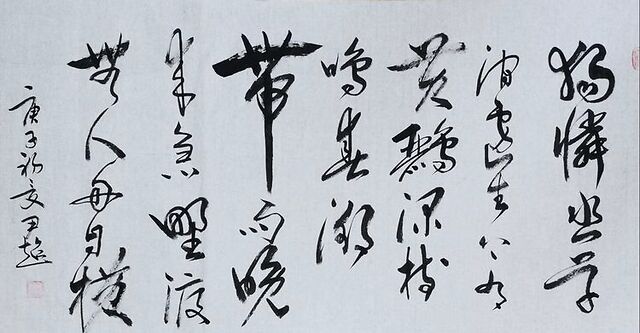 獨憐幽草
澗邊生上有
黃鸝深樹
鳴春潮
帶雨晚
來急野渡
無人舟自橫
庚子初夏